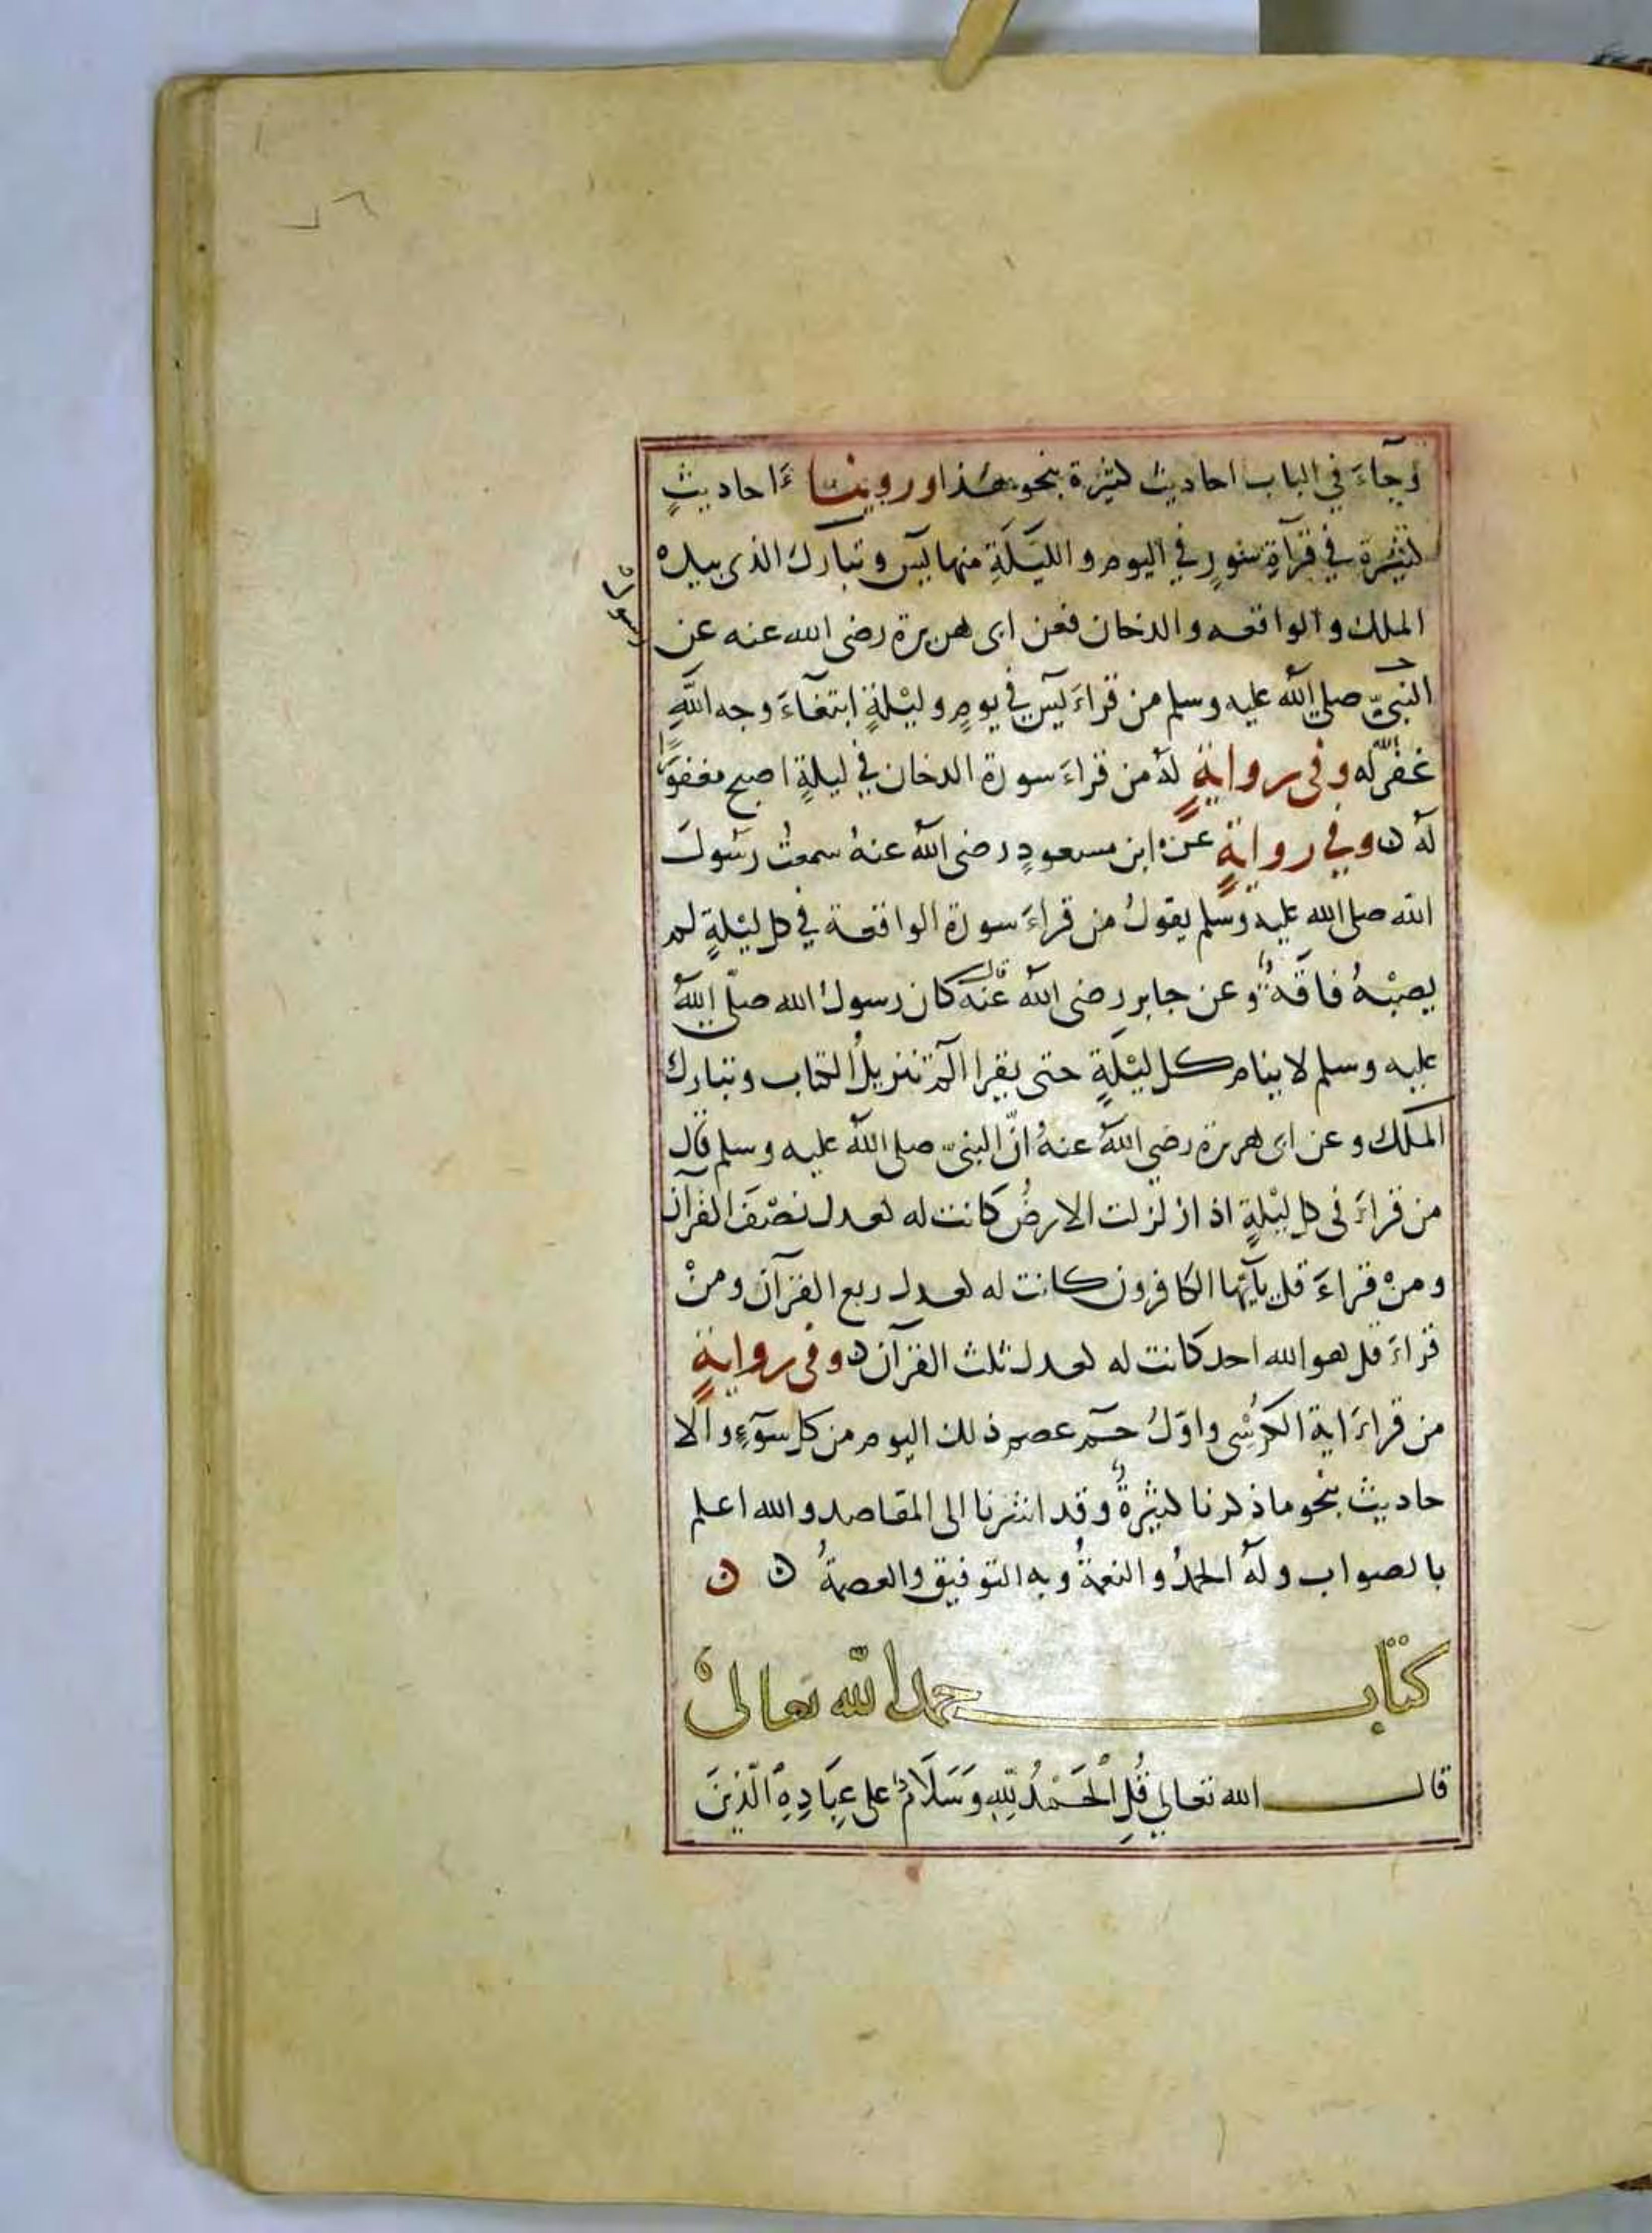 وجآءَ في الباب احاديث كثيرة بنحو هذا وروينا ءَاحاديثٍ
كثيرة في قرآةِ سُوَرٍ في اليوم والليلَةِ منها يٓس وتبارك الذى بيده
الملك والواقعه والدخان فعن ابى هريرة رضى الله عنه عن
النبيّ صلى الله عليه وسلم من قراءَ يٓس في يومٍ وليْلةٍ ابتغآءَ وجه اللهِ
غفر الله له وفى روايةٍ لهُ من قراءَ سورة الدخان في ليلةٍ اصبح مغفورًا
لهُ وفي روايةٍ عن ابن مسعودٍ رضى الله عنهُ سمعتُ رسُولَ
الله صلى الله عليه وسلم يقولُ من قراءَ سورة الواقعة في كل ليْلةٍ لم
يصبْهُ فاقةٌ وعن جابر رضى الله عنه قال كان رسول الله صلّى الله
عليه وسلم لا ينام كل ليْلَةٍ حتى يقرا الٓمٓ تنزيلُ الكتاب وتبارك
الملك وعن ابى هريرة رضي اللهُ عنهُ انّ النبىّ صلى اللهُ عليه وسلم قال
من قراءَ فى كل ليْلةٍ اذا زلزلت الارضُ كانت له كعدل نصْفَ القرآن
ومنْ قراءَ قل يآيُّها الكافرون كانت له كعدل ربع القرآن ومنْ
قراءَ قل هو الله احد كانت له كعدل ثلث القرآن وفى روايةٍ
من قراءَ اية الكرْسِى واوّلُ حٓمٓ عصم ذلك اليوم من كل سوٓءٍ والا
حاديث بنحو ما ذكرنا كثيرةٌ وقد اشرنا الى المقاصد والله اعلم
بالصواب ولهُ الحمدُ والنعمةُ وبه التوفيق والعصمةُ
كتاب حمد الله تعالى
قال الله تعالى قُلِ الْحَمْدُ لِلّٰهِ وَسَلَامٌ على عِبَادِهِ الَّذِينَ